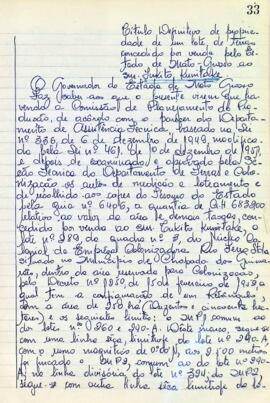 33
Titulo Definitivo de proprie
dade de um lote de terras
concedido por venda pelo Es-
tado de Mato-Grosso ao
snr. Kumitake
O Governador do Estado de Mato Grosso
Faz saber aos que o presente virem que ha-
vendo a Comissão de Planejamento da Pro-
dução, de acôrdo com o parecer do Departa-
mento de Assistência Técnica, baseado na Lei
Nº 336, de 6 de Dezembro de 1949, modifica-
da pela Lei nº 461, de 10 de Dezembro de 1951,
e depois de examinado e approvado pela Se-
ção Técnica do Departamento de Terras e Colo-
nização os autos de medição e loteamento e
de recolhido aos cofres do Tesouro do Estado
pela guia nº a quantia de
relativo ao valor da área e demais taxas, conce-
dido por venda ao snr. Kumitake, o
lote nº 289 do quadro nº do Núcleo Co-
lonial da Empresa Colonizadora Rio
situado no Município de Chapada dos Guima-
rães, dentro da área reservada para Colonização,
pelo Decreto nº de de Fevereiro de
que tem a configuração de um
com a area de 250 Ha (Duzentos e cincoenta hecta-
res), e os seguintes limites: o MP1 comum ao
do lotes nº 260 e 290-A. Deste marco segue-se
com uma linha seca, limitrofe do lote nº 290-A,
com o rumo magnético de aos 2.500 metros
foi fincado o MP2 comum ao do lote nº 290-
A, na linha divisória do lote nº 324, do MP2
segue-se com outra linha seca limitrofe do lo-